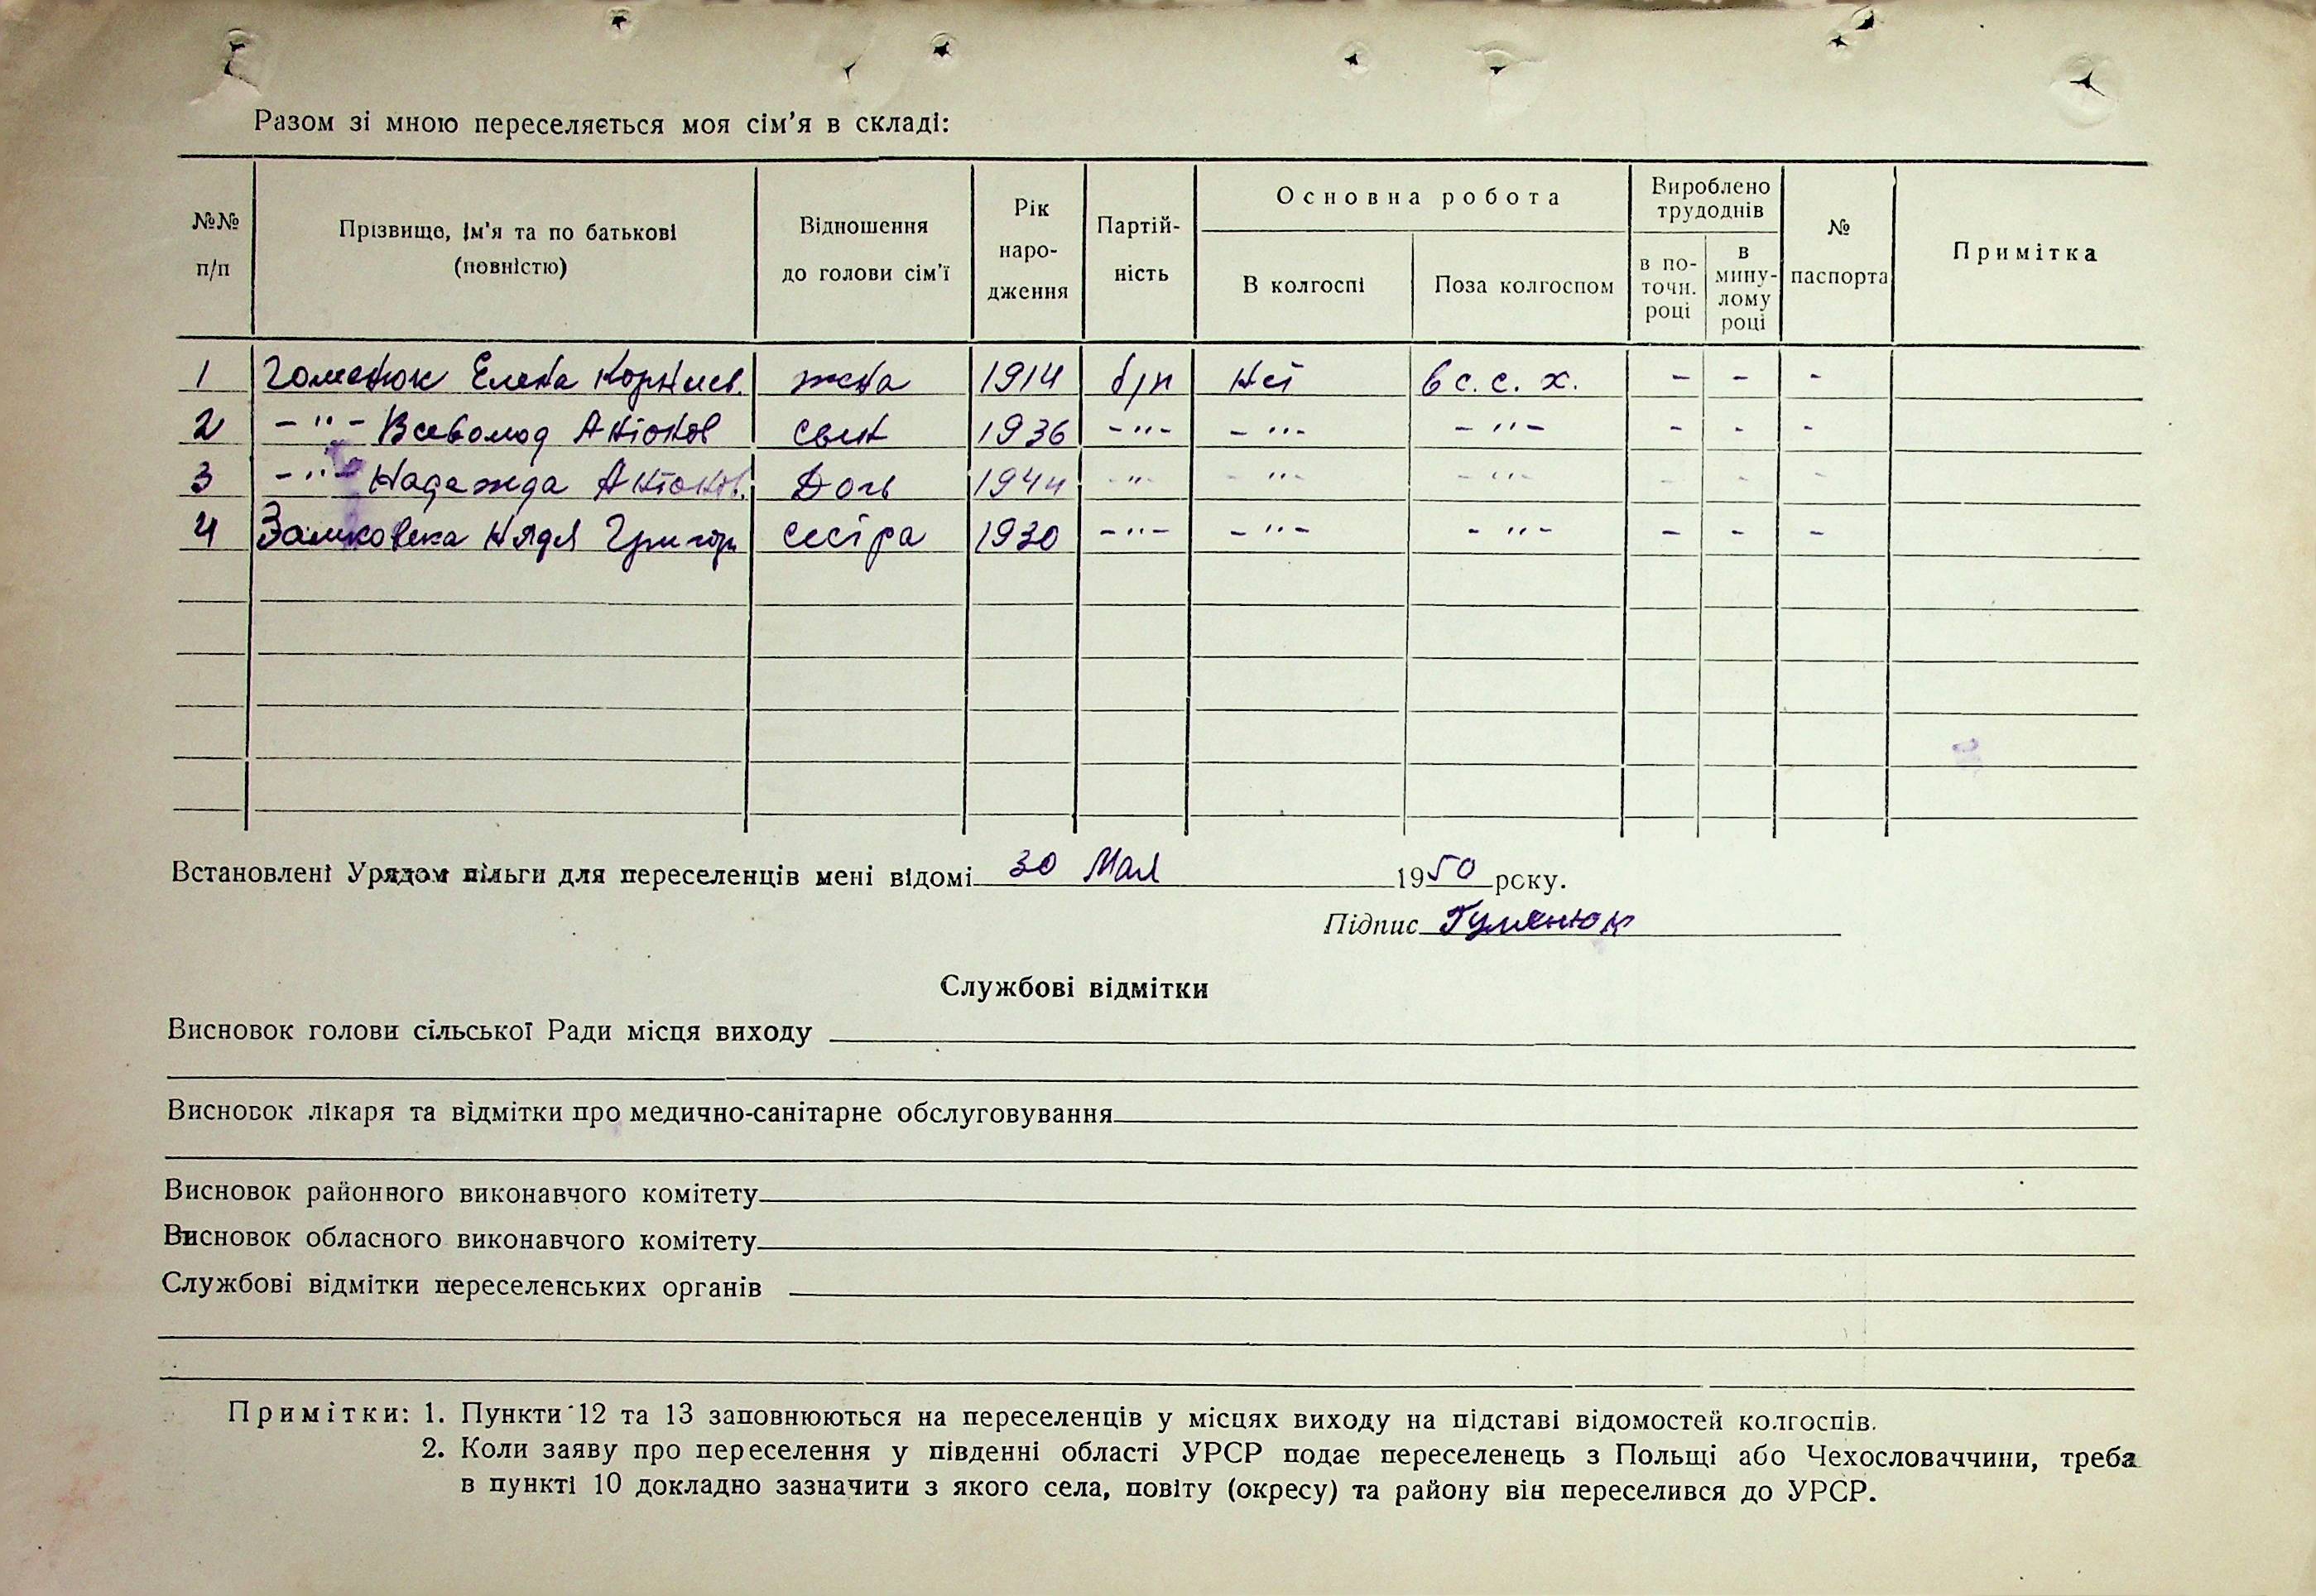 Разом зі мною переселяється моя сім'я в складі:
№№ п/п
Прізвище, ім'я та по батькові (повністю)
Відношення до голови сім'ї
Рік наро-дження
Партій-ність
Основна робота
В колгоспі
Поза колгоспом
Вироблено трудоднів
в по-точн. році
в мину-лому році
№ паспорта
Примітка
1 Гоменюк Елена Корниев. жена 1914 б/п нет в с. с. х. - - -
2 -"- Всеволод Антонов сын 1936 -"- -"- -"- - - -
3 -"- Надежда Антонов. Дочь 1944 -"- -"- -"- - - -
4 Замковска Надя Григор сестра 1930 -"- -"- -"- - - -
Встановлені Урядом пільги для переселенців мені відомі 30 Мая 1950 року.
Підпис Гуменюк
Службові відмітки
Висновок голови сільської Ради місця виходу
Висновок лікаря та відмітки про медично-санітарне обслуговування
Висновок районного виконавчого комітету
Висновок обласного виконавчого комітету
Службові відмітки переселенських органів
Примітки: 1. Пункти 12 та 13 заповнюються на переселенців у місцях виходу на підставі відомостей колгоспів.
2. Коли заяву про переселення у південні області УРСР подає переселенець з Польщі або Чехословаччини, треба
в пункті 10 докладно зазначити з якого села, повіту (окресу) та району він переселився до УРСР.